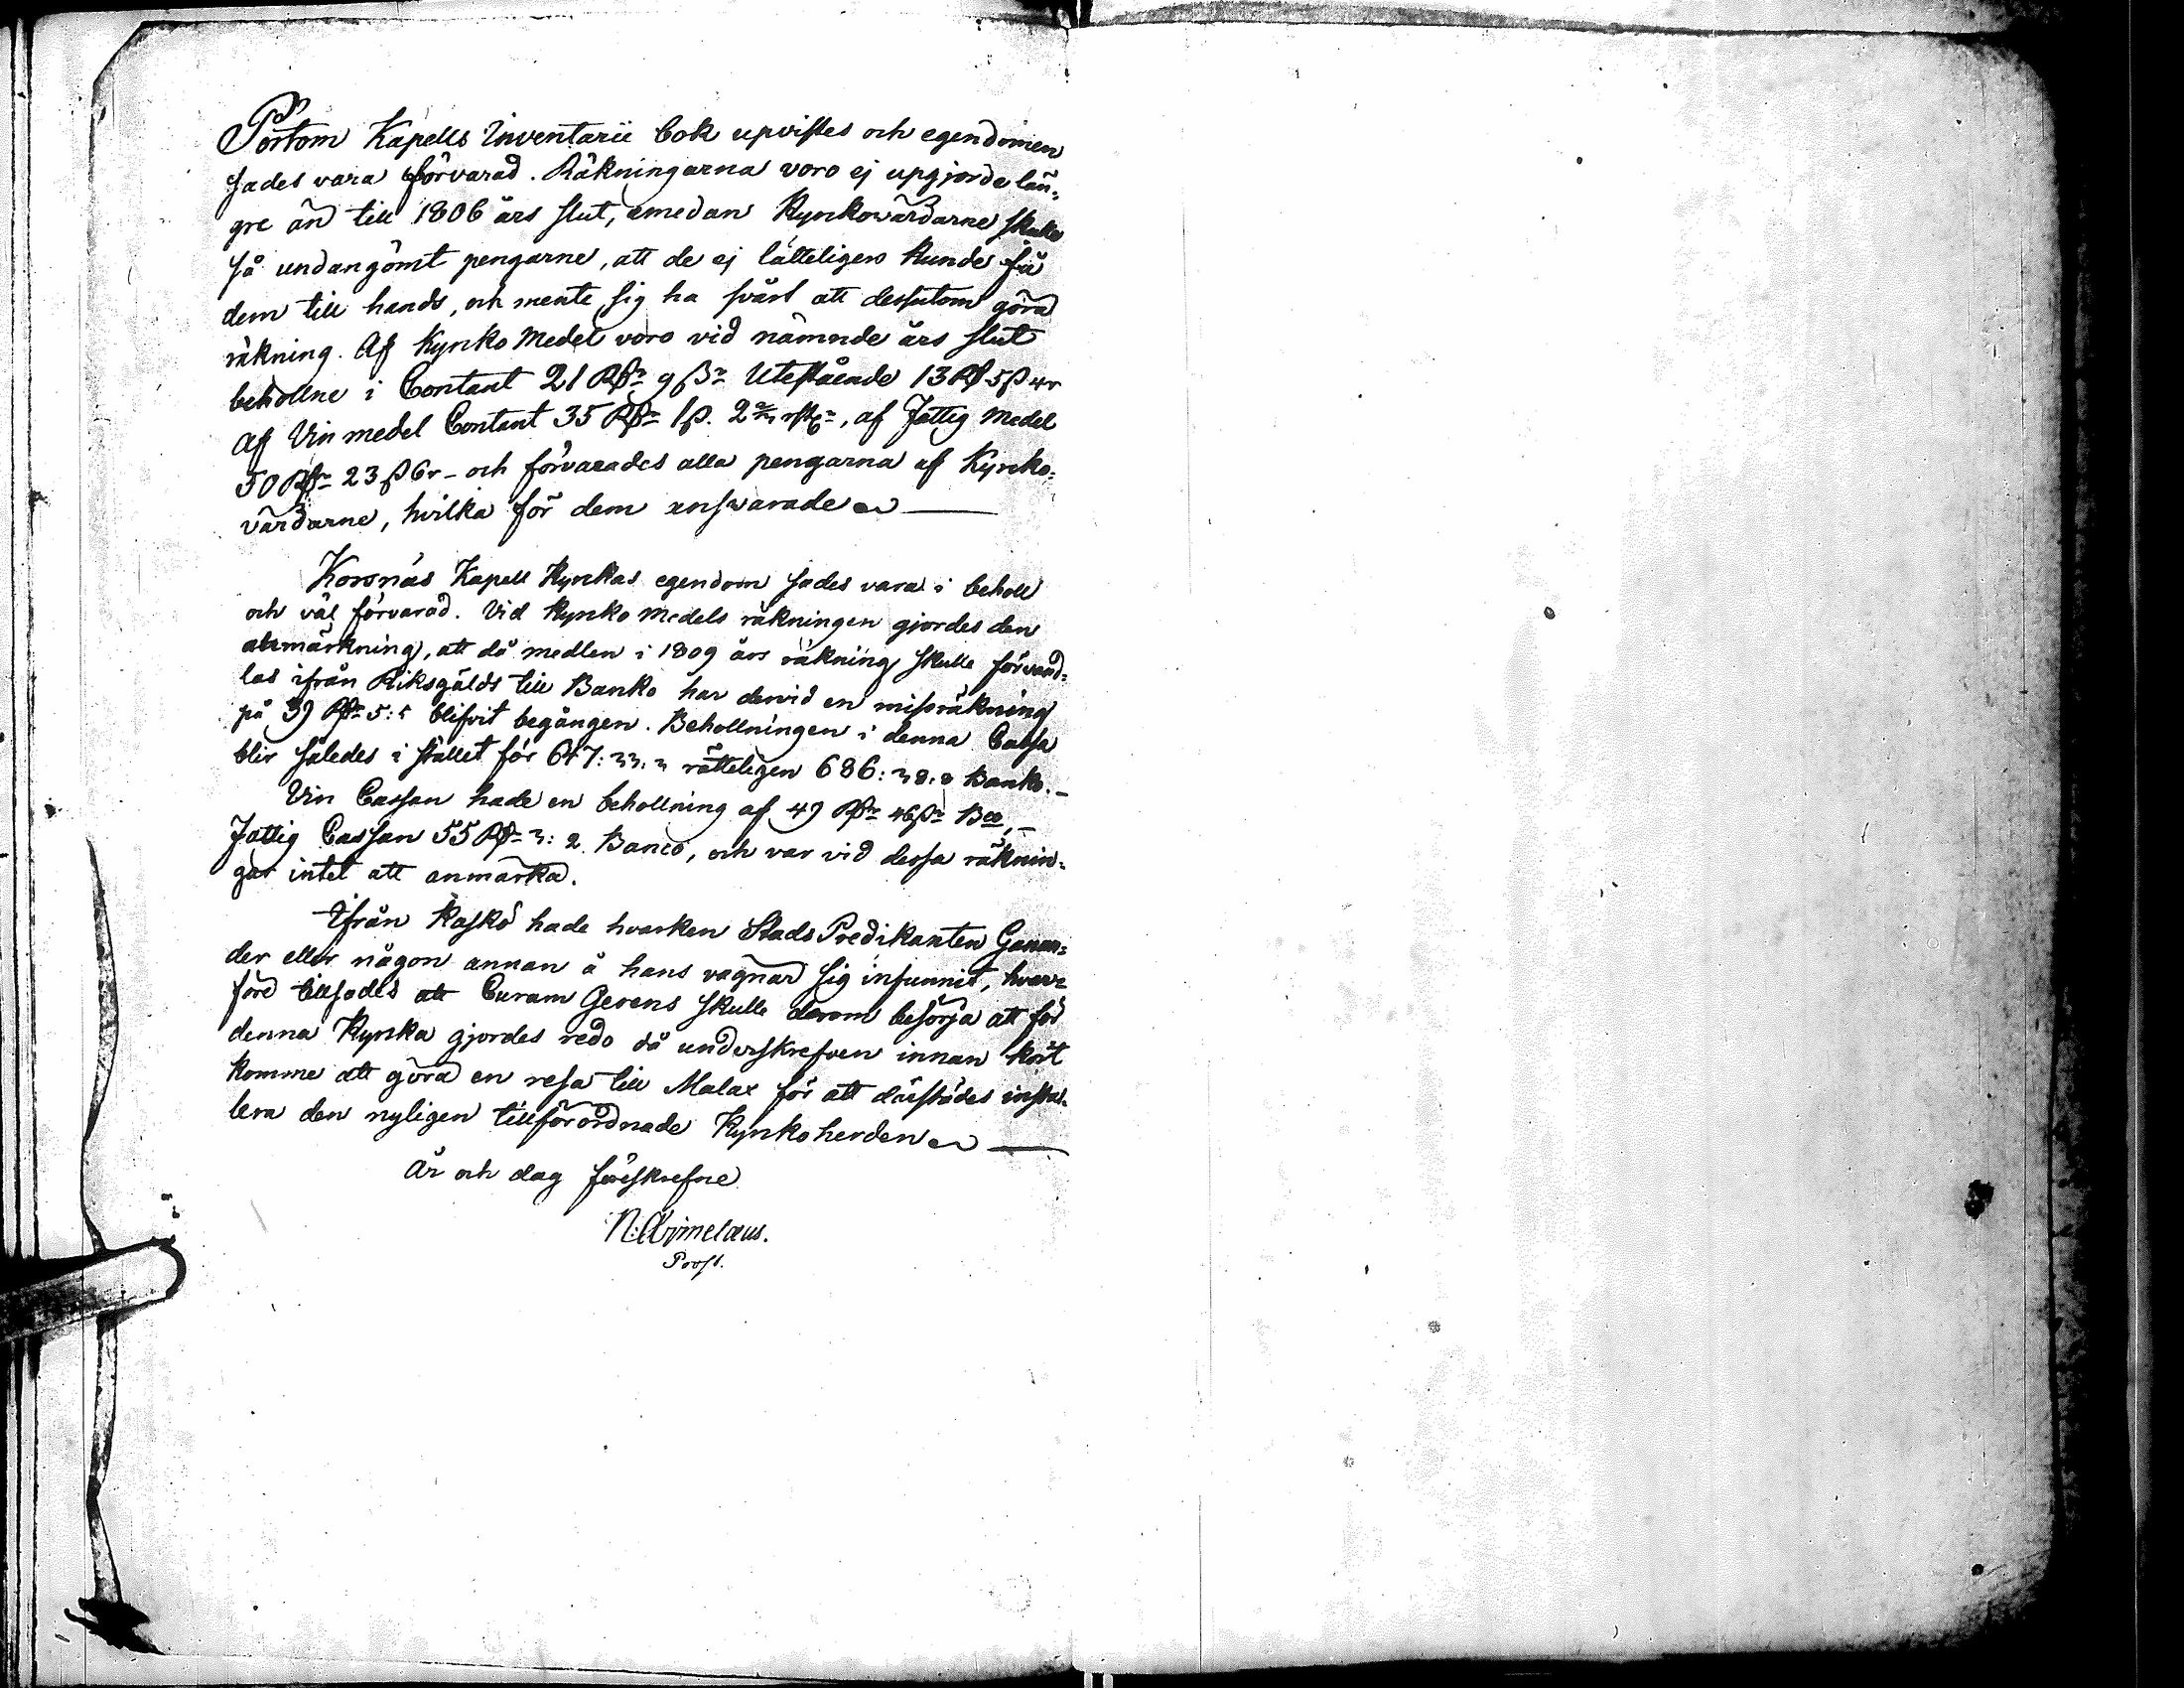 Pörtom Kapells Inventarii bok upvistes och egendomen
sades vara förvarad. Räkningarna voro ej upgjorde län-
gre än till 1806 års slut, emedan Kyrkovärdarne skulle
så undangömt pengarne, att de ej lätteligen kunde få
dem till hands, och mente sig ha svårt att dessutom göra
räkning. Af Kyrko Medel voro vid nämnde års slut
behollne i Contant 21 Rdr 9 ß Utestående 13 Rd 5 ß 4 r
Af Vin medel Contant 35 Rdr 1 ß. 2, af Fattig Medel
50 Rdr 23 ß 6 r – och förvarades alla pengarna af Kyrko-
värdarne, hvilka för dem ansvarade
Korsnäs Kapell Kyrkas egendom sades vara i behåll
och väl förvarad. Vid Kyrko Medels räkningen gjordes den
anmärkning, att då medlen i 1809 års räkning skulle förvand-
las ifrån Riksgälds till Banko har dervid en missräkning
på 39 Rdr 5: 5 blifvit begången. Behollningen i denna Cassa
blir således i stället för 647: 33. 3 rätteligen 686: 38. 8 Banko. –
Vin Cassan hade en behollning af 49 Rdr 46 ß Bco, –
Fattig Cassan 55 Rdr 3: 2 Banco, och var vid dessa räknin-
gar intet att anmärka.
Ifrån Kaskö hade hvarken Stads Predikanten Ganan-
der eller någon annan å hans vägnar sig infunnit, hvar-
före tillsades att Curam Gerens skulle derom besörja att för
denna Kyrka gjordes redo då underskrefven innan kort
komme att göra en resa till Malax för att därstädes instal-
lera den nyligen tillförordnade Kyrkoherden
År och dag förskrefne
N: Aejmelæus.
Prost.